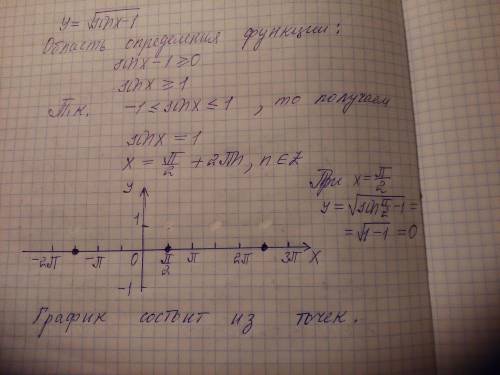 y = √sinx-1
Область определения функции:
sinx-1 ≥ 0
sinx ≥ 1
Т.к. -1 ≤ sinx ≤ 1, то получаем
sinx = 1
x = π/2 + 2πn, n ∈ Z
При x = π/2
y = √sin π/2 - 1 =
= √1-1 = 0
y
1
-2π -π 0 π/2 π 2π 3π x
-1
График состоит из точек.